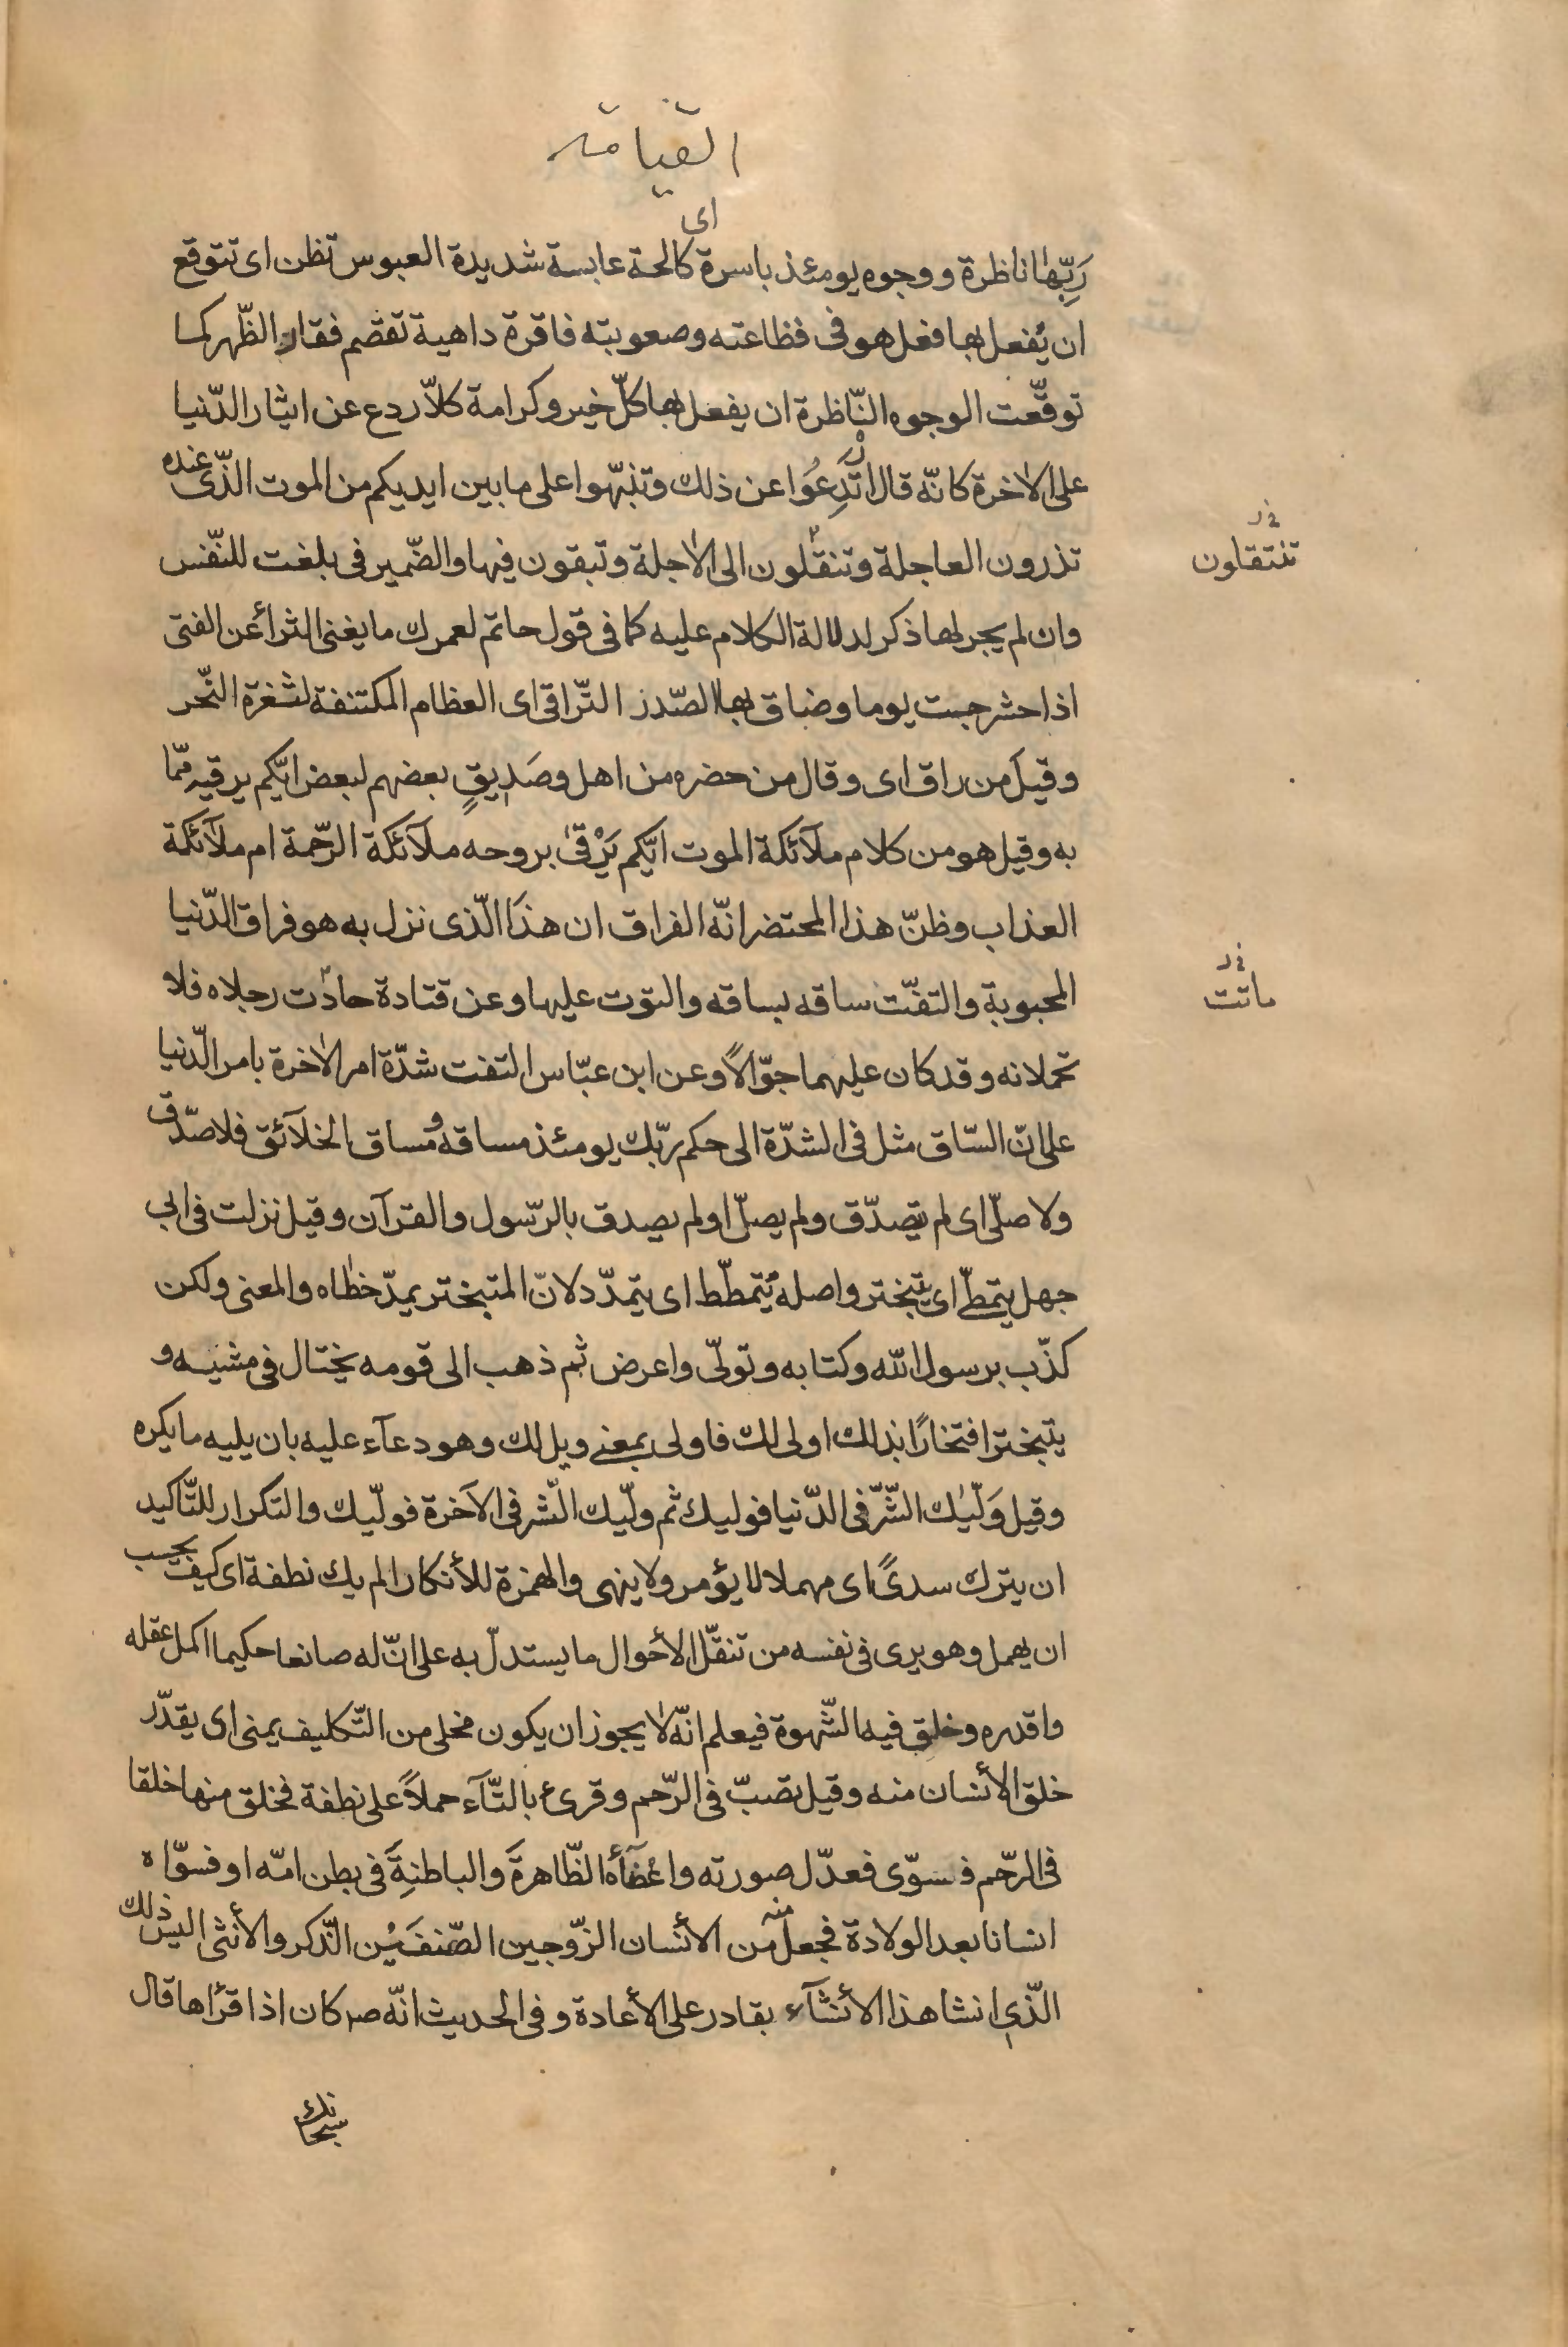 القيامة
اى
رَبِّهٰا ناظرة ووجوه يومئذ باسرة كالحة عابسة شديدة العبوس تظن اى تتوقع
ان يُفعل بها فعل هو فى فظاعته وصعوبته فاقرة داهية تقصّم فقار الظّهر كما
توقّعت الوجوه النّاظرة ان يفعل بها كلّ خير وكرامة كلاّ ردع عن ايثار الدّنيا
على الاخرة كانّه قال ارْتَدِعُوا عن ذلك وتنبّهوا على ما بين ايديكم من الموت الذّى عنده
تذرون العاجلة وتنقلون الى الاجلة وتبقون فيها والضّمير فى بلغت للنّفس
فى ر
تنتقلون
وان لم يجر لها ذكر لدلالة الكلام عليه كما فى قول حاتم لعمرك ما يغنى الثرأ عن الفتى
اذا حشرجت يوما وضاق بها الصّدر التّراقى اى العظام المكتنفة لثغرة النّحر
وقيل من راق اى وقال من حضره من اهل وصَدِيقٍ بعضهم لبعض ايّكم يرقيه ممّا
به وقيل هو من كلام ملآئكة الموت ايّكم يَرْقىٰ بروحه ملآئكة الرّحمة ام ملآئكة
العذاب وظنّ هذا المحتضر انّه الفراق ان هذا الّذى نزل به هو فراق الدّنيا
المحبوبة والتفّت ساقه بساقه والتوت عليها وعن قتادة حادت رجلاه فلا
فى ر
ماتت
تحملانه وقد كان عليهما جوّالاً وعن ابن عبّاس التفت شدّة امر الاخرة بامر الدّنيا
على انّ السّاق مثل فى الشدّة الى حكم ربّك يومئذ مساقه ومساق الخلآئق فلا صدّق
ولا صلّى اى لم يتصدّق ولم يصلّ او لم يصدق بالرّسول والقرآن وقيل نزلت فى ابى
جهل يتمطّى اى يتبختر واصله يتمطّط اى يتمدّد لانّ المتبختر يمدّ خطاه والمعنى ولكن
كذّب برسول الله وكتابه وتولّى واعرض ثم ذهب الى قومه يختال فى مشيه و
يتبختر افتخارًا بذلك اولى لك فاولى بمعنى ويل لك وهو دعآء عليه بان يليه ما يكره
وقيل وَلّيٰك الشّرّ فى الدّنيا فوليك ثم وليّك الشّر فى الآخرة فوليّك والتكرار للتّاكيد
ان يترك سدىً اى مهملا لا يؤمر ولا ينهى والهمزة للأنكار الم يك نطفة اى كيف يحسب
ان يهمل وهو يرى فى نفسه من تنقّل الأحوال ما يستدلّ به على انّ له صانعا حكيما اكمل عقله
واقدره وخلق فيه الشّهوة فيعلم انّه لا يجوز ان يكون مخلى من التّكليف يمنى اى يقدّر
خلق الأنسان منه وقيل تصبّ فى الرّحم وقرئ بالتّآء حملاً على نطفة فخلق منها خلقا
فى الرحّم فسوّى فعدّل صورته واعْضآأه الظّاهرةَ والباطنةَ فى بطن امّه او فسوّاه
انسانا بعد الولادة فجعل منه من الأنسان الزّوجين الصّنفَيْن الذّكر والأنثى اليس ذلك
الّذى انشا هذا الأنشآء بقادر على الأعادة وفى الحديث انّه ص كان اذا قرأها قال
سبحانك